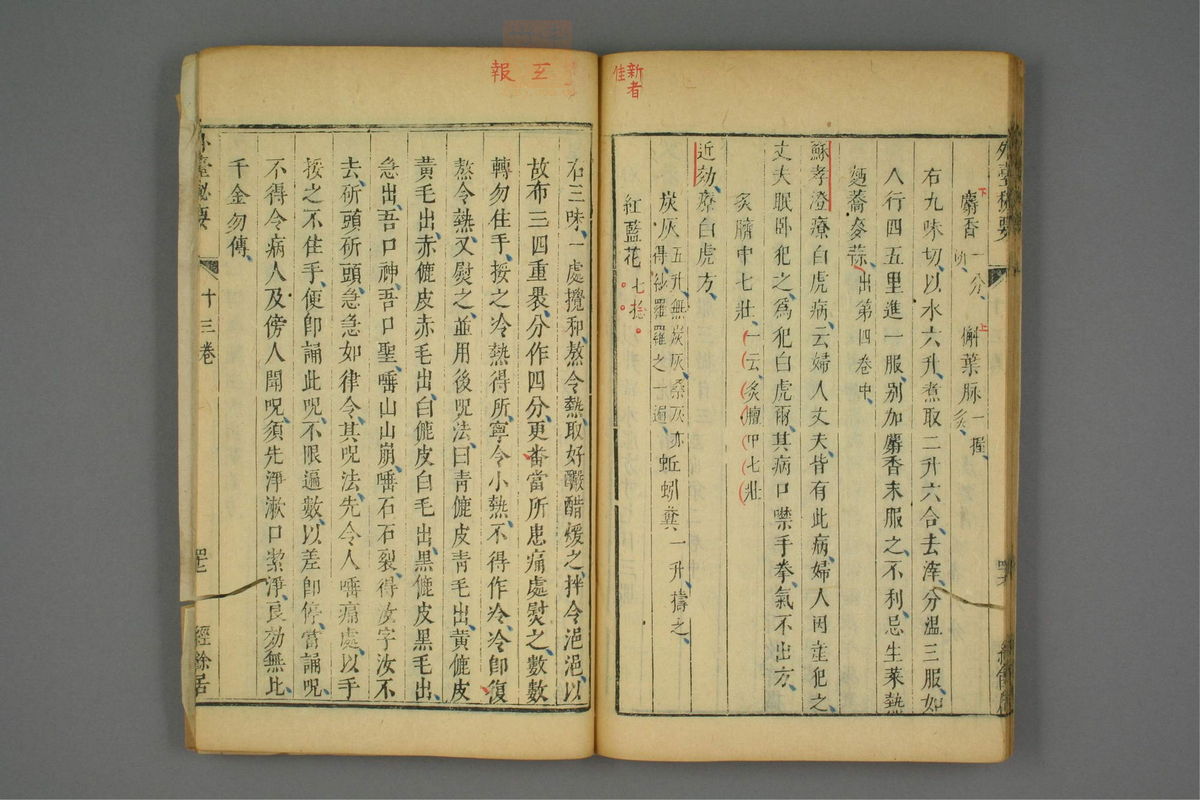 新者
佳
外臺秘要
麝香一分研 下 槲葉脉一握炙 上
右九味切以水六升煮取二升六合去滓分溫三服如
人行四五里進一服別加麝香末服之不利忌生菜熱
麵蕎麥蒜出第四卷中
蘇孝澄療白虎病云婦人丈夫皆有此病婦人因產犯之
丈夫眠臥犯之爲犯白虎爾其病口噤手拳氣不出方
灸臍中七壯一云灸臆中七壯
近効療白虎方
炭灰五升無炭灰桑灰亦得紗羅羅之一遍 蚯蚓糞一升擣之
紅藍花七捻
報 五
右三味一處攪和熬令熱取好釅醋煖之拌令浥浥以
故布三四重褁分作四分更番當所患痛處熨之數數
轉勿住手按之冷熱得所寧令小熱不得作冷冷卽復
熬令熱又熨之並用後呪法曰青傂皮青毛出黄傂皮
黄毛出赤傂皮赤毛出白傂皮白毛出黑傂皮黑毛出
急出吾口神吾口聖唾山山崩唾石石裂得汝字汝不
去斫頭斫頭急急如律令其呪法先令人唾痛處以手
按之不住手便卽誦此呪不限遍數以差卽停當誦呪
不得令病人及傍人聞呪須先淨漱口絜淨良効無比
千金勿傳
外臺秘要 十三卷 罡七 經餘居